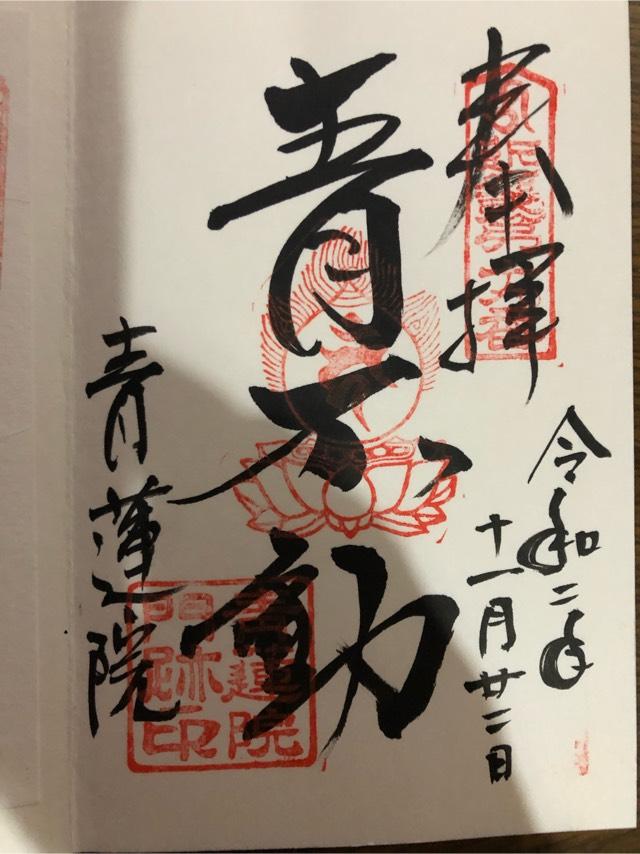 奉拝
令和二年
十一月廿二日
青不動
青蓮院
青蓮院
門跡印